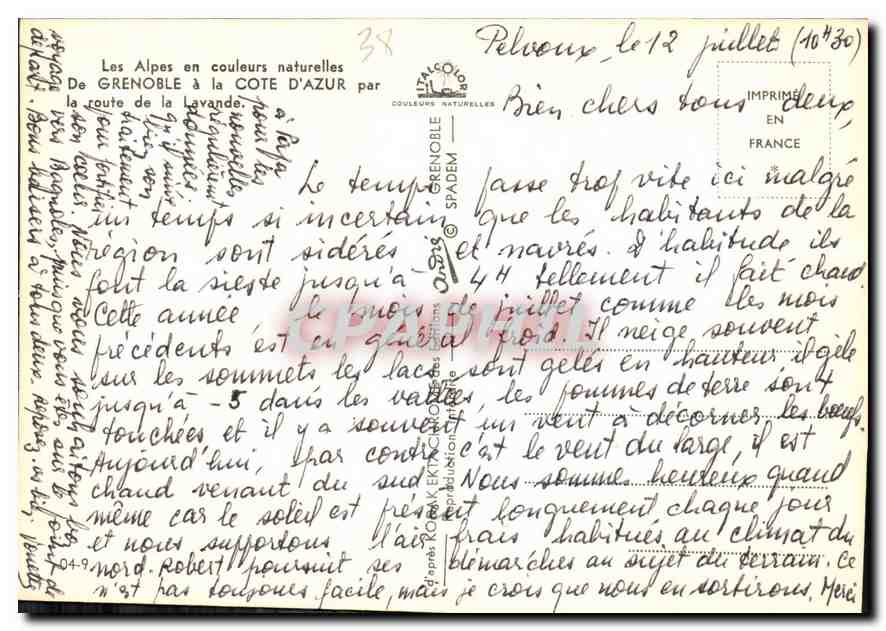 38
Pelvoux, le 12 juillet (10H30)
Les Alpes en couleurs naturelles
De GRENOBLE à la COTE D'AZUR par
la route de la Lavande.
ITALCOLOR
COULEURS NATURELLES
IMPRIMÉ
EN
FRANCE
Bien chers tous deux,
Le temps passe trop vite ici malgré
un temps si incertain que les habitants de la
région sont sidérés et navrés. D'habitude ils
font la sieste jusqu'à 4H tellement il fait chaud.
Cette année le mois de juillet comme les mois
précédents est en général froid. Il neige souvent
sur les sommets les lacs sont gelés en hauteur il gèle
jusqu'à -5 dans les vallées, les pommes de terre sont
touchées et il y a souvent un vent à décorner les boeufs.
Aujourd'hui, par contre c'est le vent du large, il est
chaud venant du sud. Nous sommes heureux quand
même car le soleil est présent longuement chaque jour
et nous supportons l'air frais habitués au climat du
nord. Robert poursuit ses démarches au sujet du terrain. Ce
n'est pas toujours facile, mais je crois que nous en sortirons. Merci
à Papa
pour les
nouvelles
régulièrement
données
qu'il suive
bien son
traitement
pour fortifier
son coeur. Nous vous souhaitons bon
voyage vers Bagnoles, puisque vous êtes sur le point de
départ. Bons baisers à tous deux.
04-9
d'après KODAK EKTACHROME des Editions André GRENOBLE
Reproduction interdite © SPADEM
CPARAMA